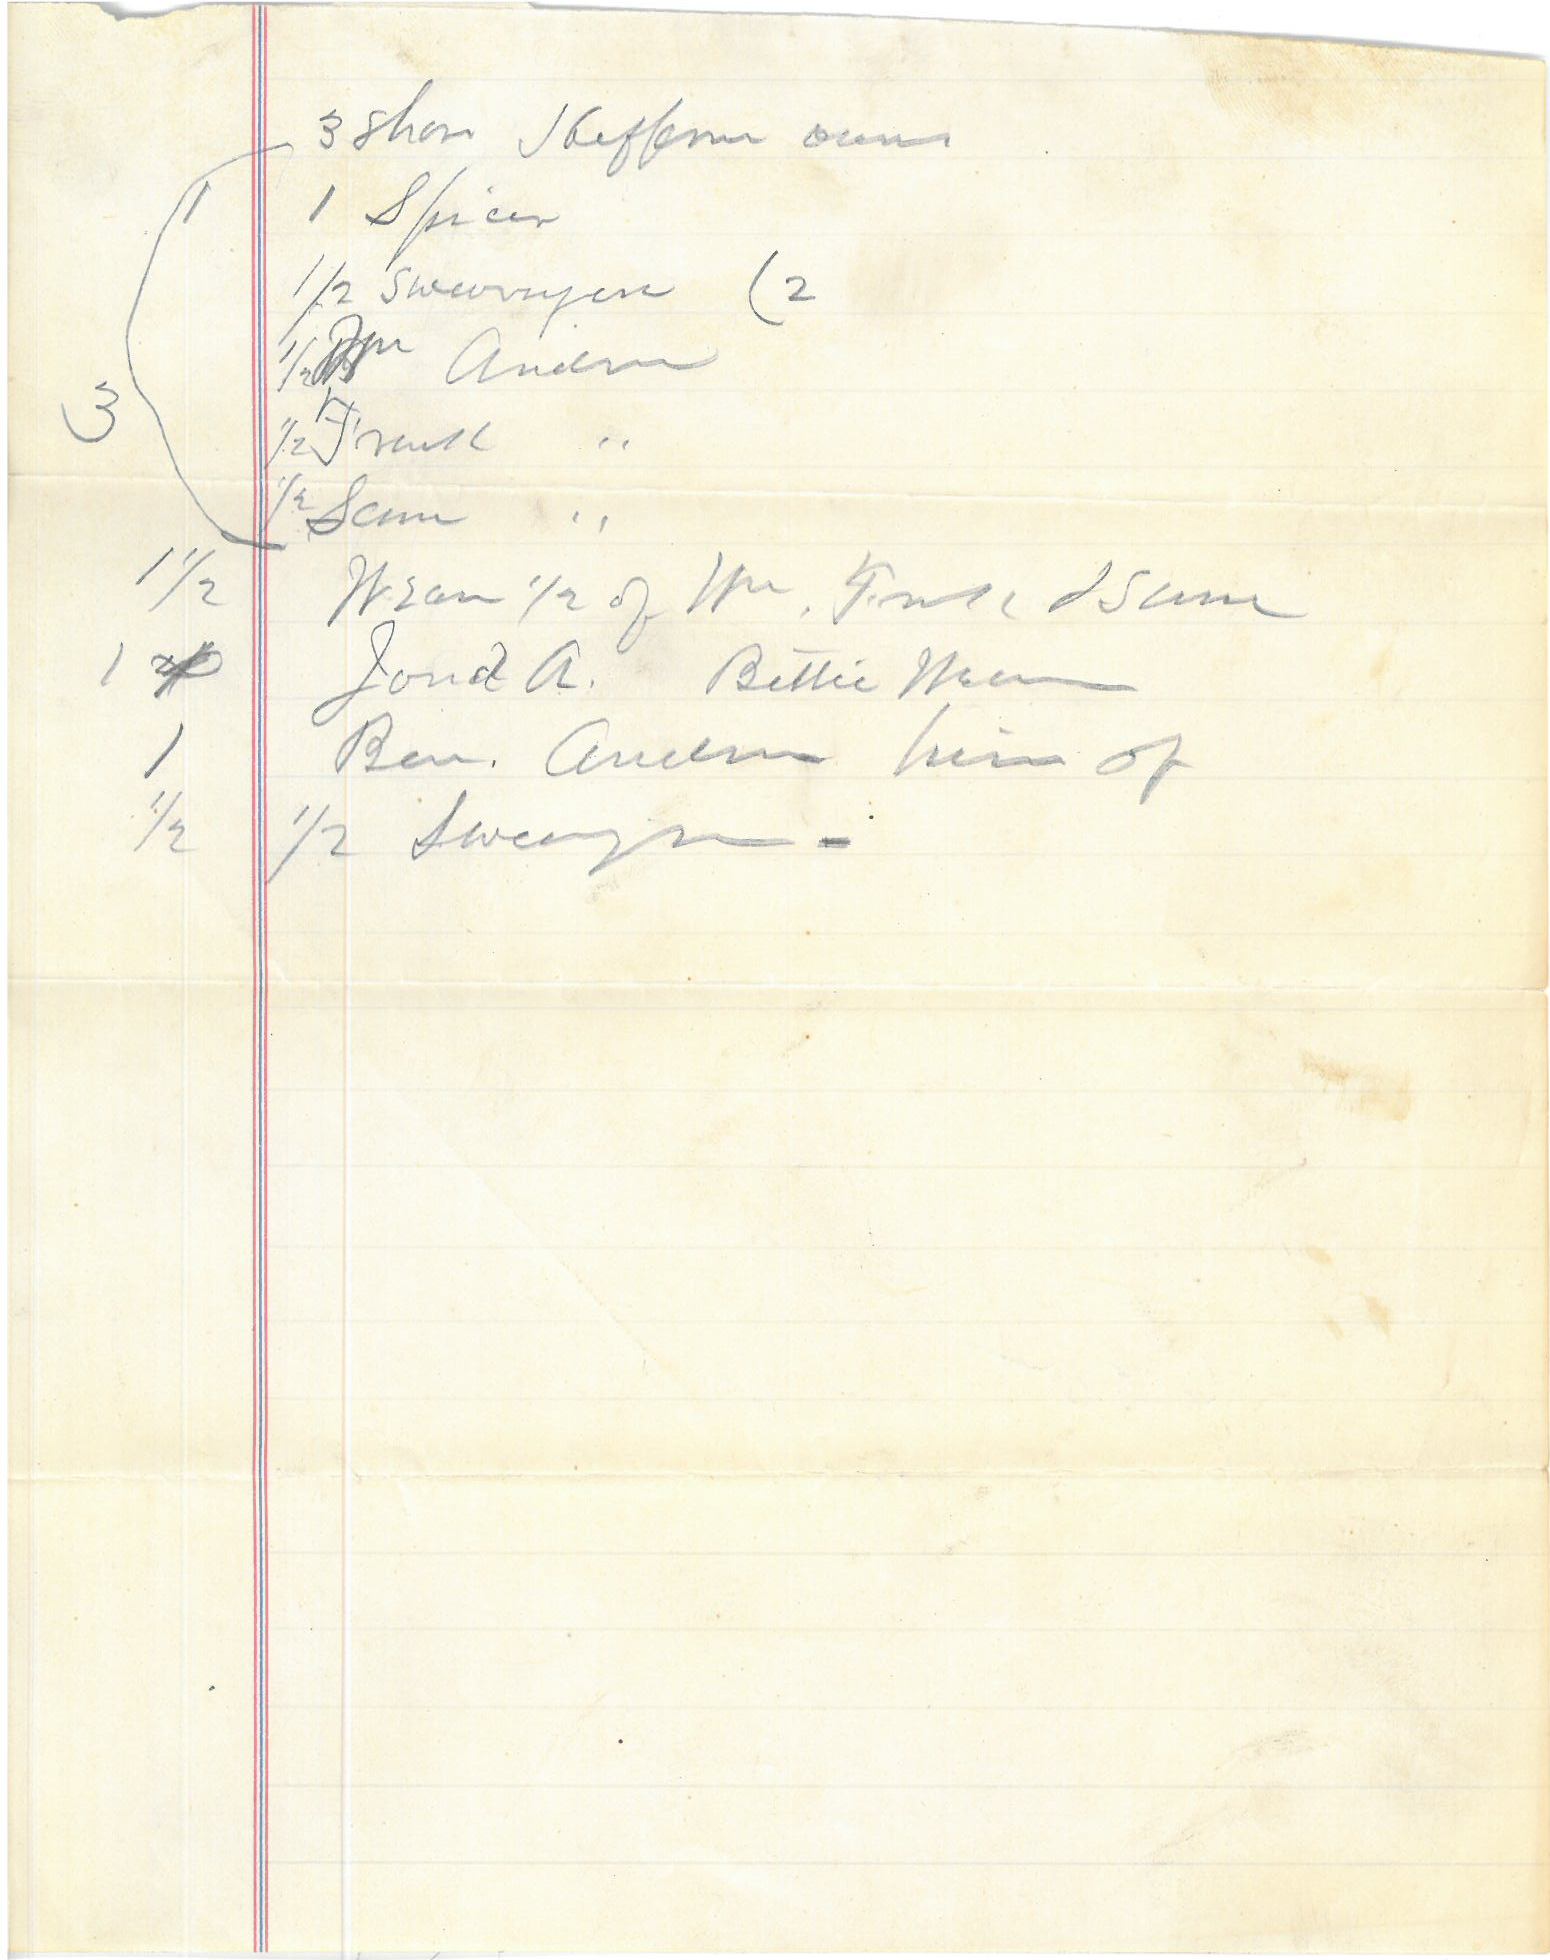 3 Shares Heffern owns
1 1 Spicer
1/2 Swearngen (2
1/2 Wm Andrew
3
1/2 Frank "
1/2 Sam "
1 1/2 1/2 of Wm. Frank & Sam
1 A. Bettie
1 Ben. Andrew heir of
1/2 1/2 Swearngen -